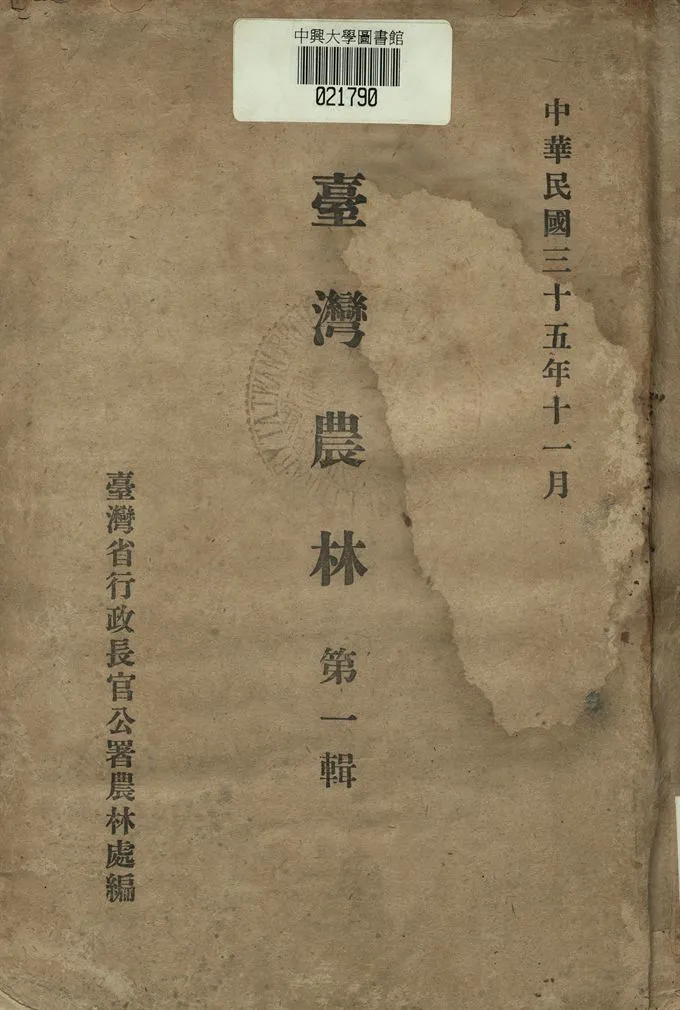 中興大學圖書館
021790
中華民國三十五年十一月
臺灣農林 第一輯
臺灣省行政長官公署農林處編